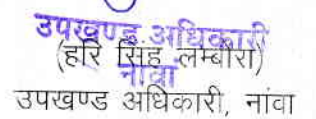 उपखण्ड अधिकारी
(हरि सिंह लम्बोरा)
नांवा
उपखण्ड अधिकारी, नांवा